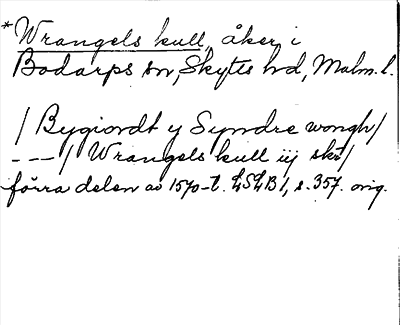 *Wrangels kull, åker i
Bodarps sn, Skytts hd, Malm. l.
/ Bygiordt y Syndre wongh /
--- / Wrangels kull iij skr /
förra delen av 1570-t. LSLB 1, s. 357. orig.